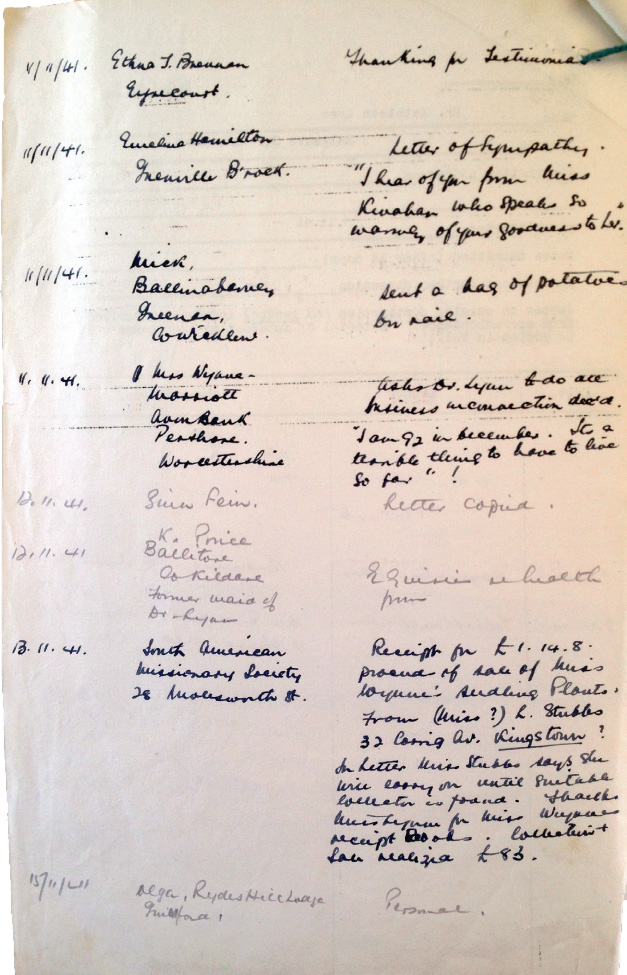 11/11/41. Ethna T. Brennan Thanking for Testimonial.
Eyrecourt.
11/11/41. Emelina Hamilton Letter of Sympathy.
Grenville Brook. "I hear of you from Miss
Kinahan who speaks so
warmly of your goodness to her."
11/11/41. Mick,
Ballinabarney sent a bag of potatoes
Greenan, by rail.
Co Wicklow.
11.11.41. Miss Wynne- asks Dr. Lynn to do all
Marriott business in connection dec'd.
Avon Bank "I am 92 in December. Its a
Pershore. terrible thing to have to live
Worcestershire so far"!
12.11.41. Sinn Fein. Letter copied.
12.11.41 K. Price
Ballitore
Co Kildare Enquiries re health
Former maid of from
Dr Lynn
13.11.41. South American Receipt for £1.14.8.
Missionary Society proceeds of sale of Miss
28 Molesworth St. Wynne's seedling Plants.
From (Miss?) L. Stubbs
32 Corrig Av. Kingstown?
In letter Miss Stubbs says she
will carry on until suitable
collector is found. Thanks
Miss Lynn for Miss Wynne's
receipt Books. Collection +
Sale realizia £83.
15/11/41 Olga, Rydes Hill Lodge
Guilford, Personal.